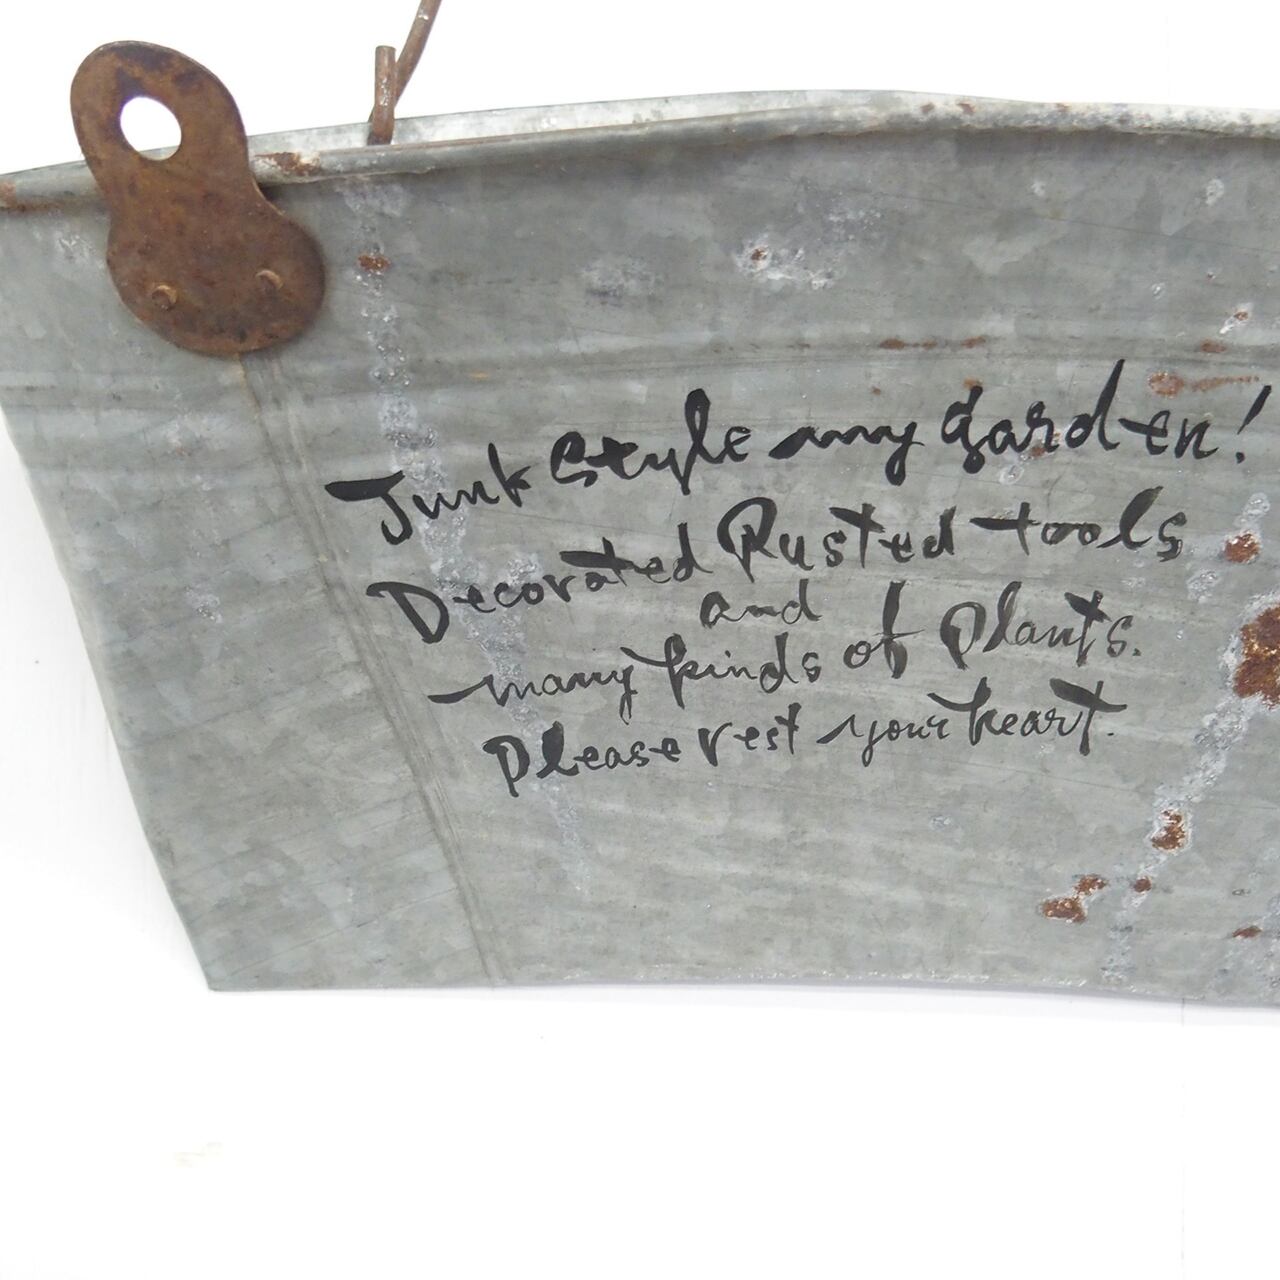 Junk Style my garden!
Decorated Rusted tools
and
many kinds of Plants.
Please rest your heart.